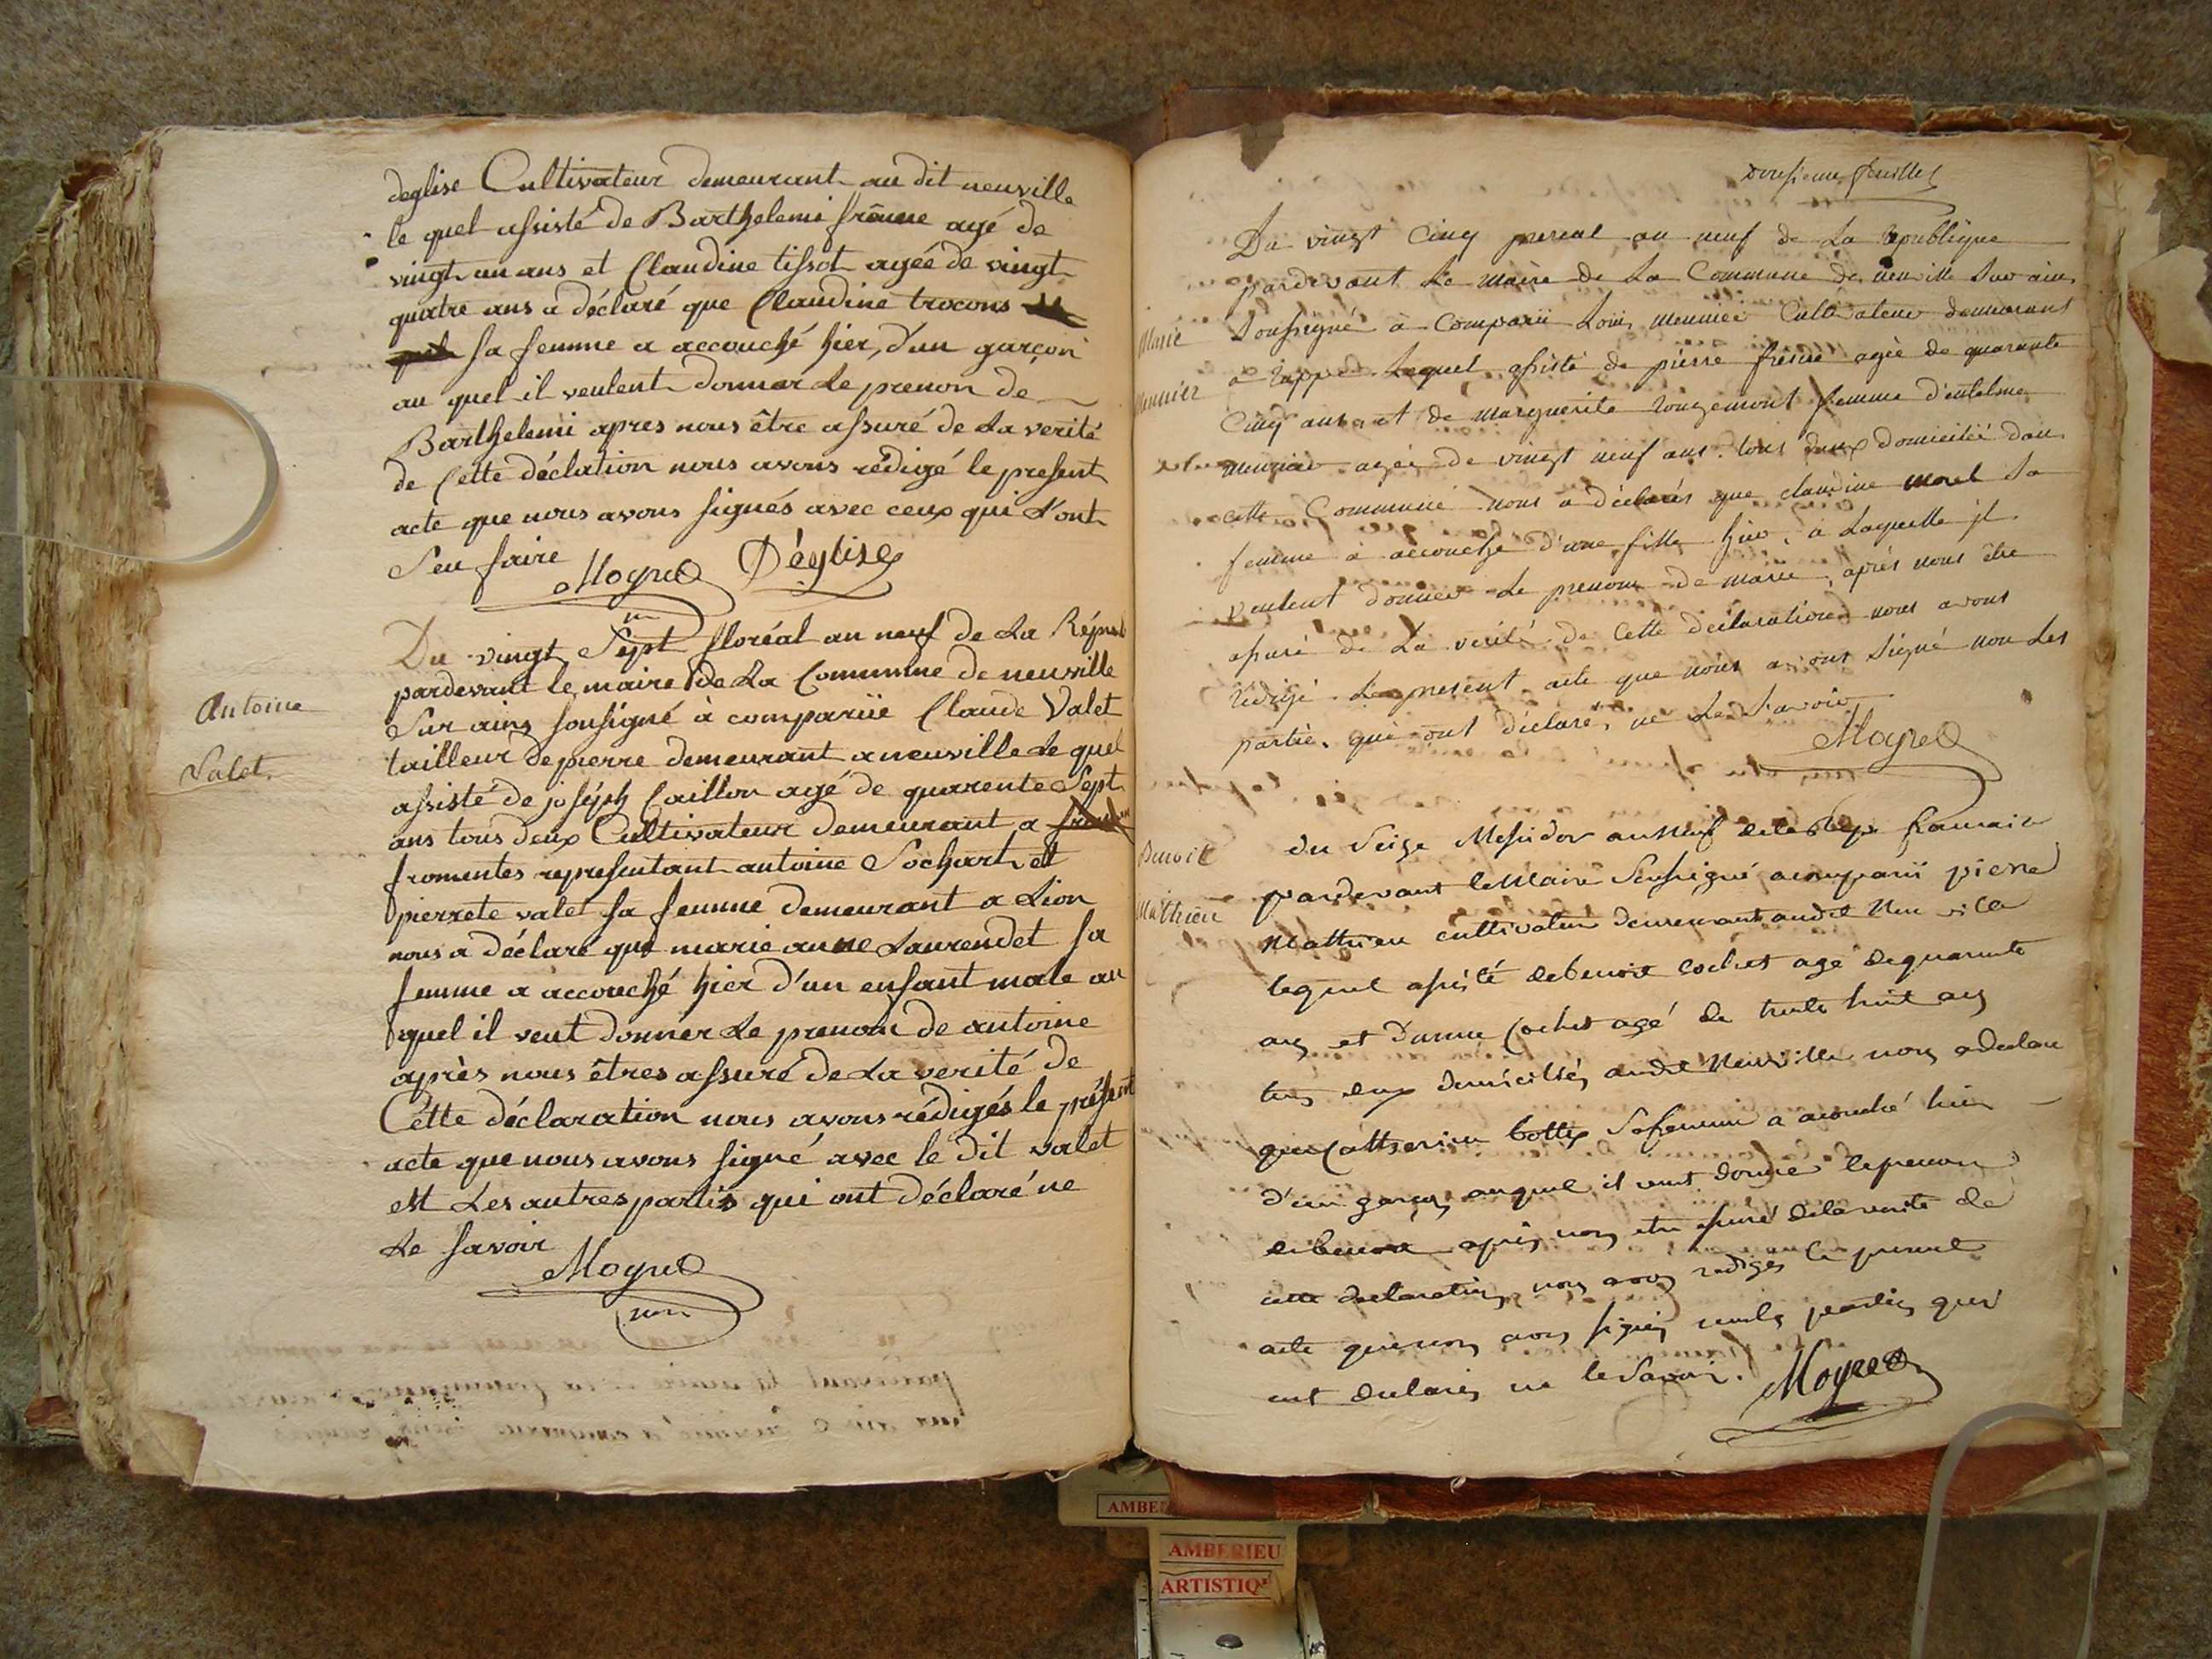 deglise Cultivateur demeurant au dit neuville
le quel assisté de Barthelemi frâune agé de
vingt un ans et Claudine tissot agée de vingt
quatre ans a déclaré que Claudine trocons
sa femme a accouché hier, d'un garçon
au quel il veulent donner Le prenon de
Barthelemi apres nous être assuré de La verité
de Cette déclation nous avons rédigé le present
acte que nous avons signés avec ceux qui L'ont
Seu faire Moyret D'églises
Du vingt Sept floréal an neuf de La Répub
pardevant le maire de La Commune de neuville
Antoine
Sur ains sousigné à comparüe Claude Valet
Valet.
tailleur de pierre demeurant a neuville Le quel
assisté de joséph Caillon agé de quarente Sept
ans tous deux Cultivateur demeurant a
fromentes representant antoine Sochart et
pierrete valet sa femme demeurant a Lion
nous a déclaré que marie anne Laurendet sa
femme a accouché hier d'un enfant male au
quel il veut donner Le prenom de antoine
après nous êtres assuré de La verité de
Cétte déclaration nous avons rédigés le présent
acte que nous avons signé avec le dit valet
est Les autres partis qui ont déclaré ne
Le savoir
Moyret
Du vingt Cinq prereal an neuf de La Republique
pardevant Le maire de La Commune de neuville Sur ain
Marie
Soussigné à Comparü Loüis meunier Cultivateur demeurant
à Lequel assisté de piérre fresne agée de quarante
Meunier
Cinq ans, et de marguerite rougemont femme d'entelme
meunier agée de vingt neuf ans tous deux domicilié dans
cette Commune nous a déclarés que claudine morel Sa
femme a accouché d'une fille hier, a Laquelle il
veulent donner Le prenom de marie, aprés nous être
assuré de La verité de Cette déclaration nous avons
rédigé Le present acte que nous avons Signé non Les
partie, qui ont déclaré, ne Le Savoir
Moyret
Benoit
du Seize Messidor an Neuf de la Rep francaise
pardevant le Maire Soussigné a comparü pierre
Mathieu
Mathieu cultivateur demeurant audit Neuville
lequel assisté de benoit cochet agé de quarante
ans et Cochet agé de trente huit ans
tous deux domiciliés audit Neuville nous a déclaré
que Catherine bottex Sa femme a acouché hier
d'un garçon auquel il veut donner le prenom
de benoit apres nous etre assuré de la verité de
cette declaration nous avons redigés le present
acte que nous avons signés non les parties qui
ont declarés ne le Savoir. Moyret
AMBERIEU
ARTISTIQ